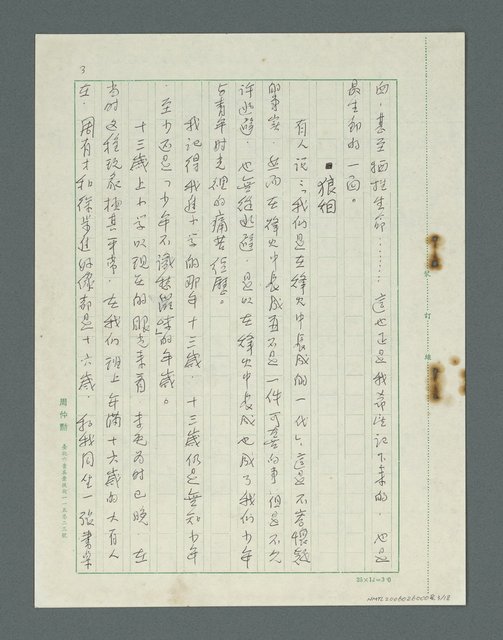 3
甚至犧牲生命……這也正是我希望記下來的,也是
最生動的一面。
■狼烟
有人說:「我們是在烽火中長成的一代」,這是不容懷疑
的事實,然而在烽火中長成並不是一件可喜的事,但是不允
許逃避,也無從逃避,是以在烽火中長成也成了我們少年
與青年時光裡的痛苦經歷。
我記得我進小學的那年十三歲,十三歲仍是無知少年
,至少還是「少年不識愁滋味」的年歲。
十三歲上小學以現在的眼光來看,委實為時已晚,在
當時這種現象極其平常,在我們班上年滿十六歲的大有人
在,周有才和徐 都是十六歲,和我同坐一張書桌
周仲勳
裝訂線
25×12=300
NMTL20060260008 3/18